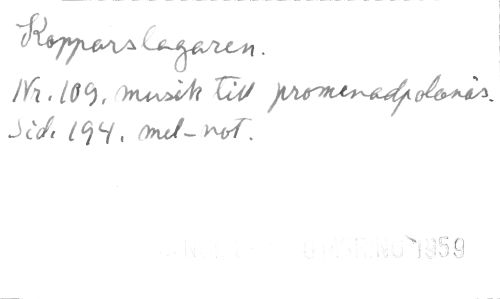 Kopparslagaren.
Nr. 109. musik till promenadpolonäs.
Sid. 194. mel-not.
1959